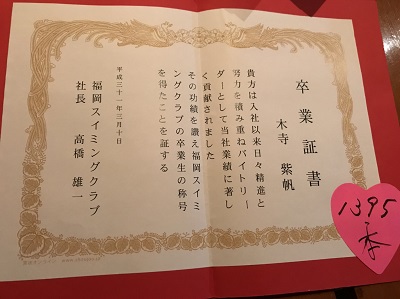 卒業証書
木寺 紫帆
貴方は入社以来日々精進と
努力を積み重ねバイトリー
ダーとして当社業績に著し
く貢献されました
その功績を讃え福岡スイミ
ングクラブの卒業生の称号
を得たことを証する
平成三十一年三月十日
福岡スイミングクラブ
社長 高橋 雄一
1395